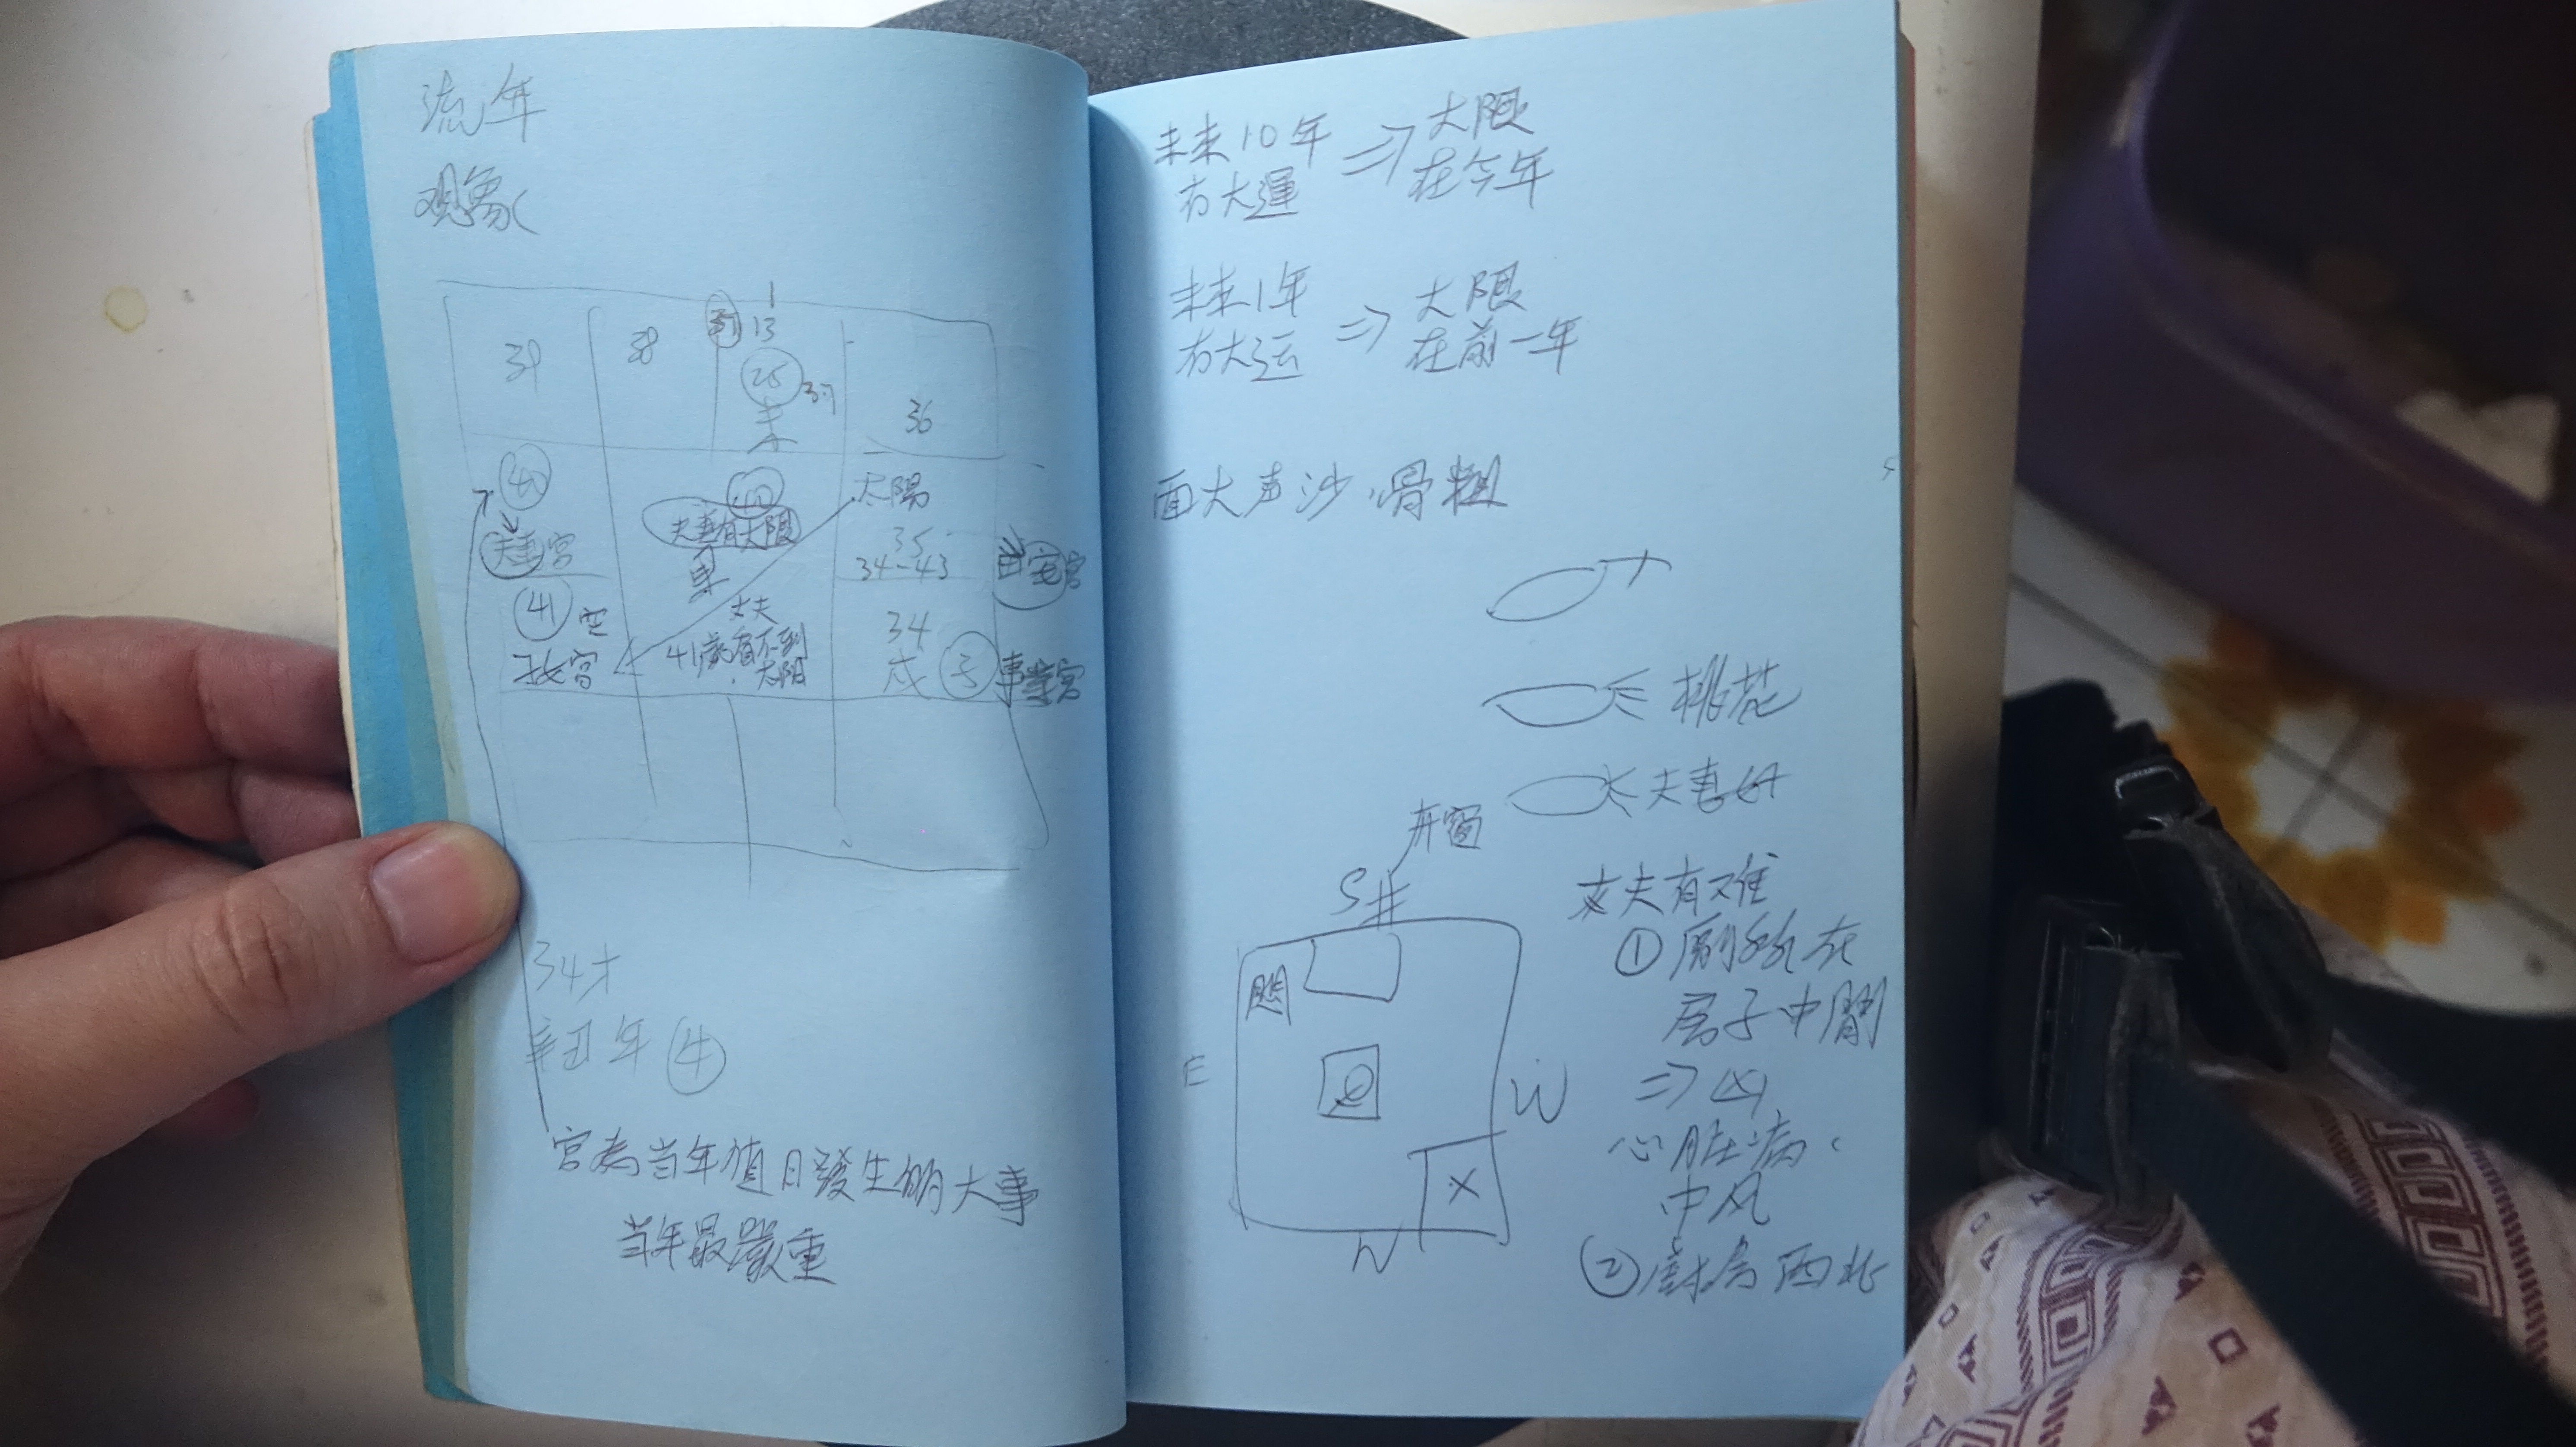 流年
观象
1
37 13
39
38
25 37
未
36
40
夫妻宮
40
夫妻有大限
太陽
35
34-43
41
丈夫
41歲看不到
太阳
34
戌
事業宮
34才
辛丑年 牛
宮為当年值日發生的大事
当年最嚴重
未来10年 ⇒ 大限
有大運 在今年
未来1年 ⇒ 大限
有大运 在前一年
面大声沙、骨粗
桃花
夫妻
开窗
S 井
E
W
N
丈夫有难
① 廁所在
房子中間
⇒ 凶
心脏病、
中风
② 西北